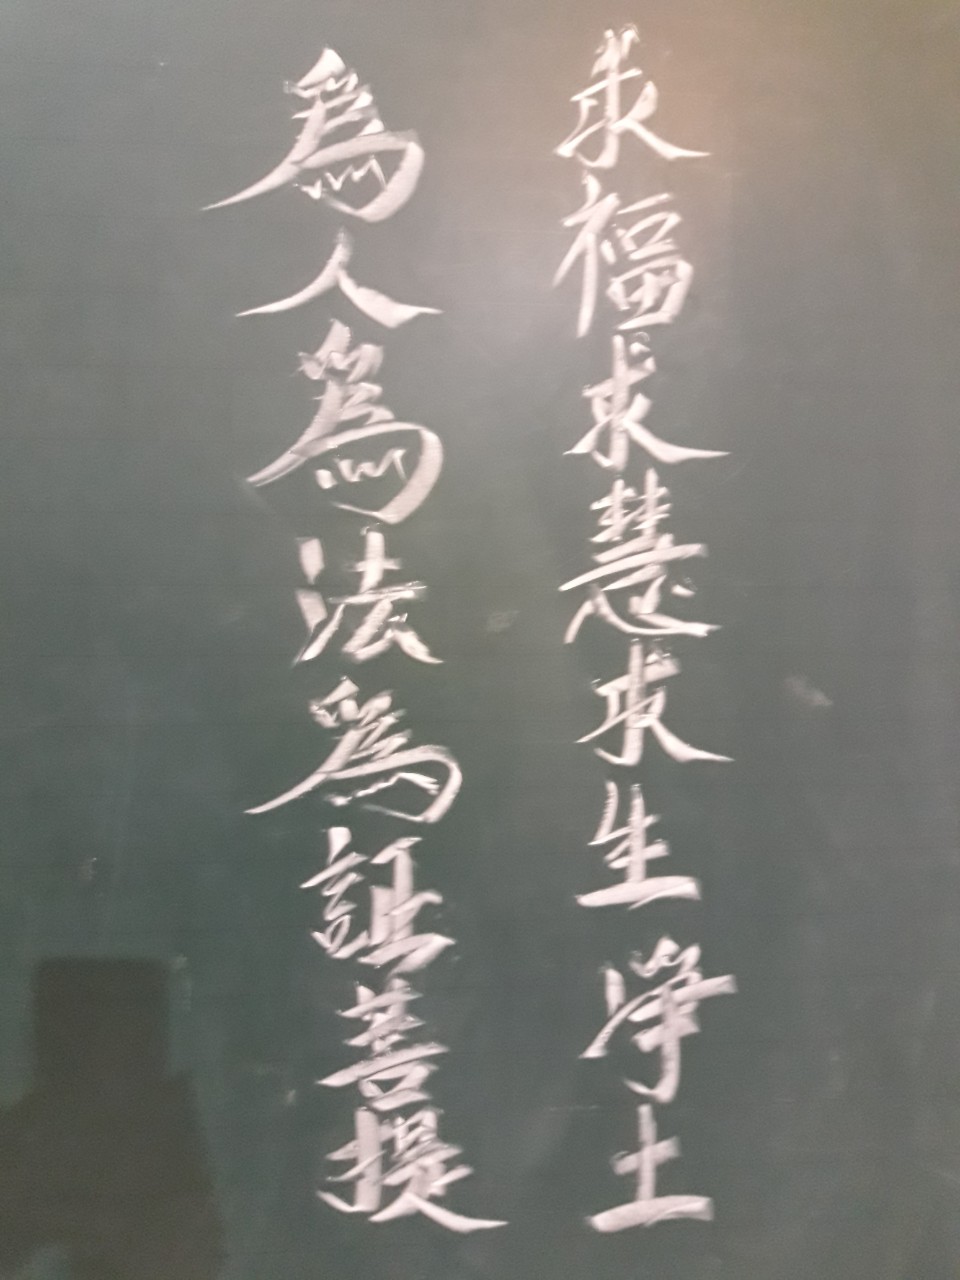 求福求慧求生淨土
為人為法為証菩提